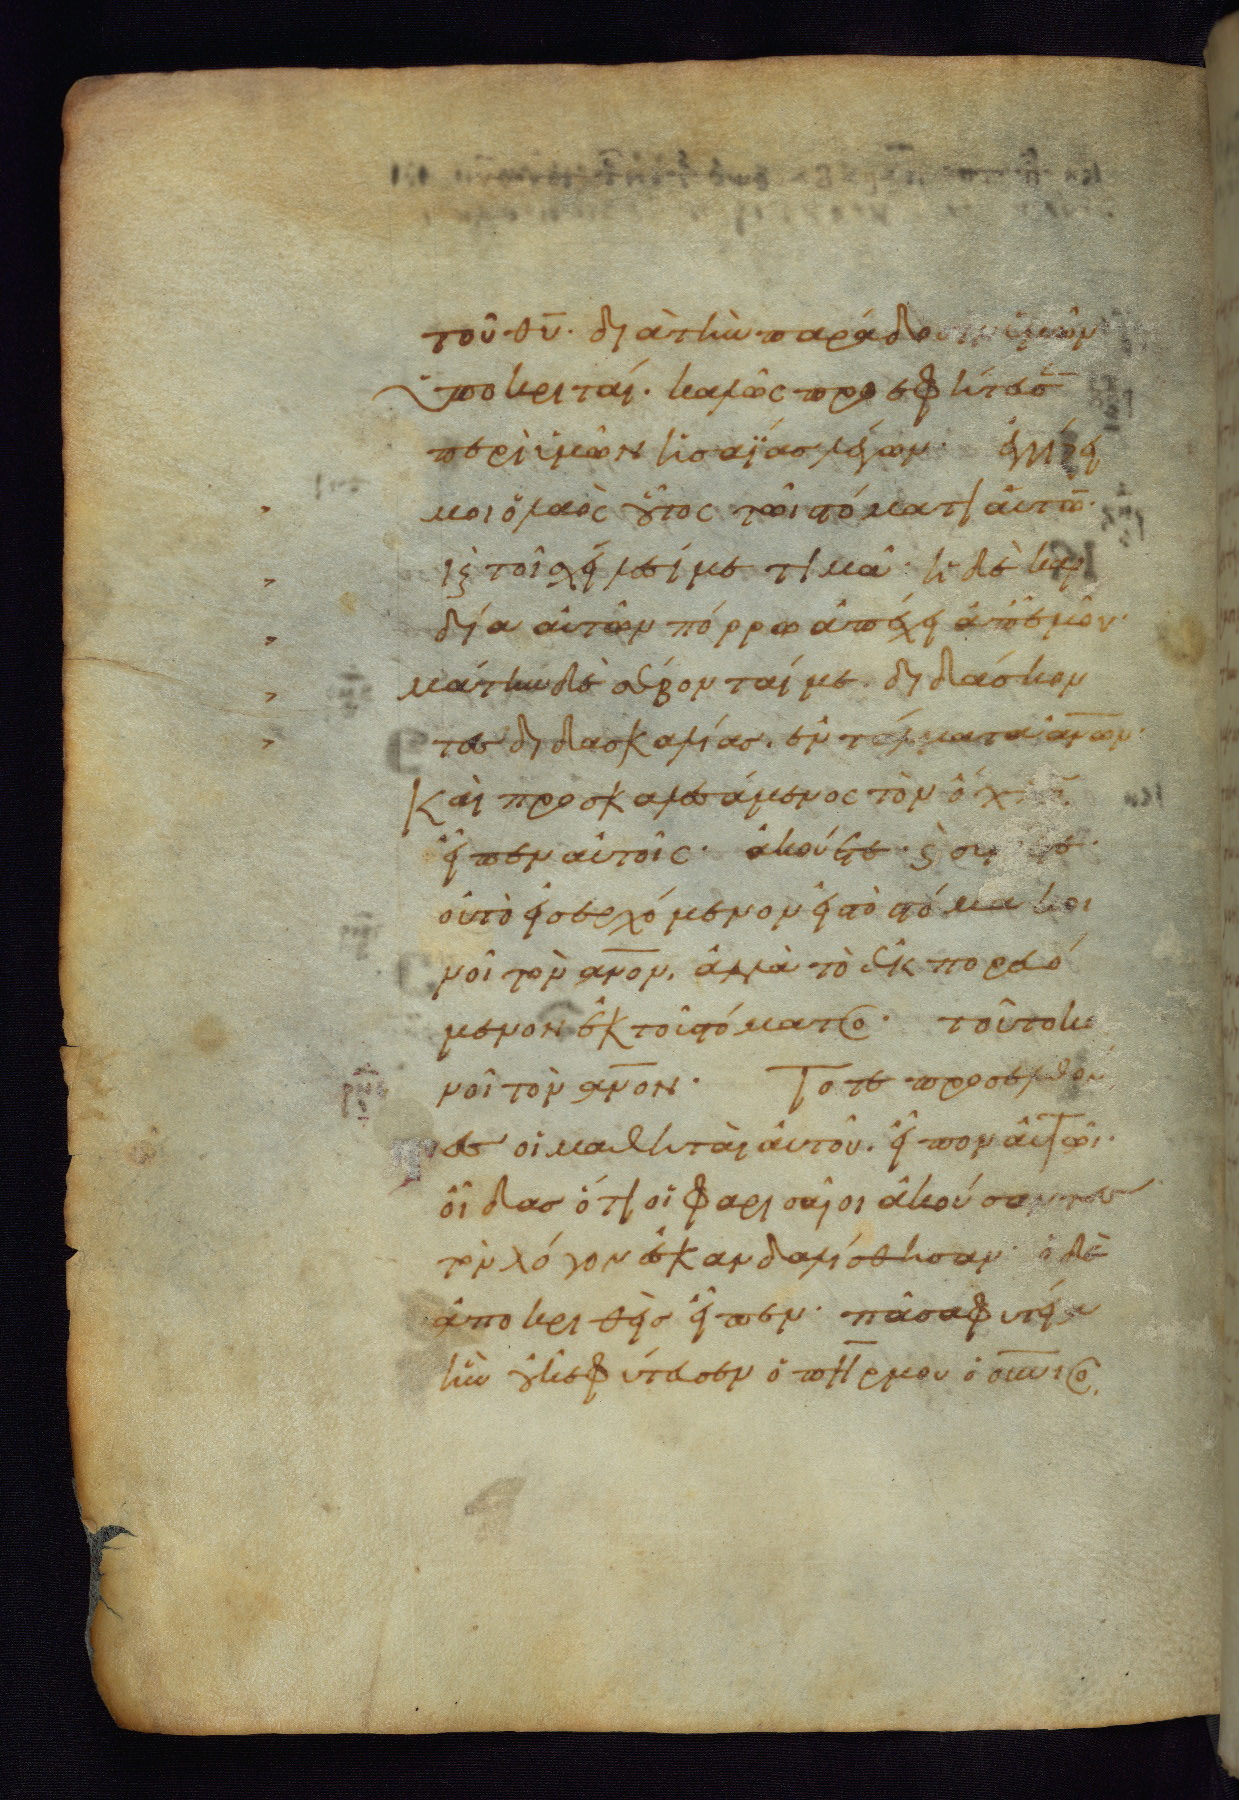 τοῦ θ̅υ̅· διὰ τὴν παράδοσιν ὑμῶν
ὑποκριταί· καλῶς προεφήτευσε
περὶ ὑμῶν ἡσαΐας λέγων· ἐγγίζει
μοι ὁ λαὸς οὗτος τῶι στόματι αὐτῶν·
καὶ τοῖς χείλεσί με τιμᾶ· ἡ δὲ καρ
δία αὐτῶν πόρρω ἀπέχει ἀπ' ἐμοῦ·
μάτην δὲ σέβονταί με· διδάσκον
τες διδασκαλίας, ἐντάλματα ἀ̅ν̅ω̅ν̅·
Καὶ προσκαλεσάμενος τὸν ὄχλον
εἶπεν αὐτοῖς· ἀκούετε καὶ συνίετε·
οὐ τὸ εἰσερχόμενον εἰς τὸ στόμα κοι
νοῖ τὸν α̅ν̅ο̅ν̅, ἀλλὰ τὸ ἐκπορευό
μενον ἐκ τοῦ στόματος· τοῦτο κοι
νοῖ τὸν α̅ν̅ο̅ν̅· Τότε προσελθόν
τες οἱ μαθηταὶ αὐτοῦ, εἶπον αὐτῶι·
οἶδας ὅτι οἱ φαρισαῖοι ἀκούσαντες
τὸν λόγον ἐσκανδαλίσθησαν· ὁ δὲ
ἀποκριθεὶς εἶπεν· πᾶσα φυτεία
ἣν οὐκ ἐφύτευσεν ὁ π̅η̅ρ̅ μου ὁ ο̅υ̅ν̅ιος,